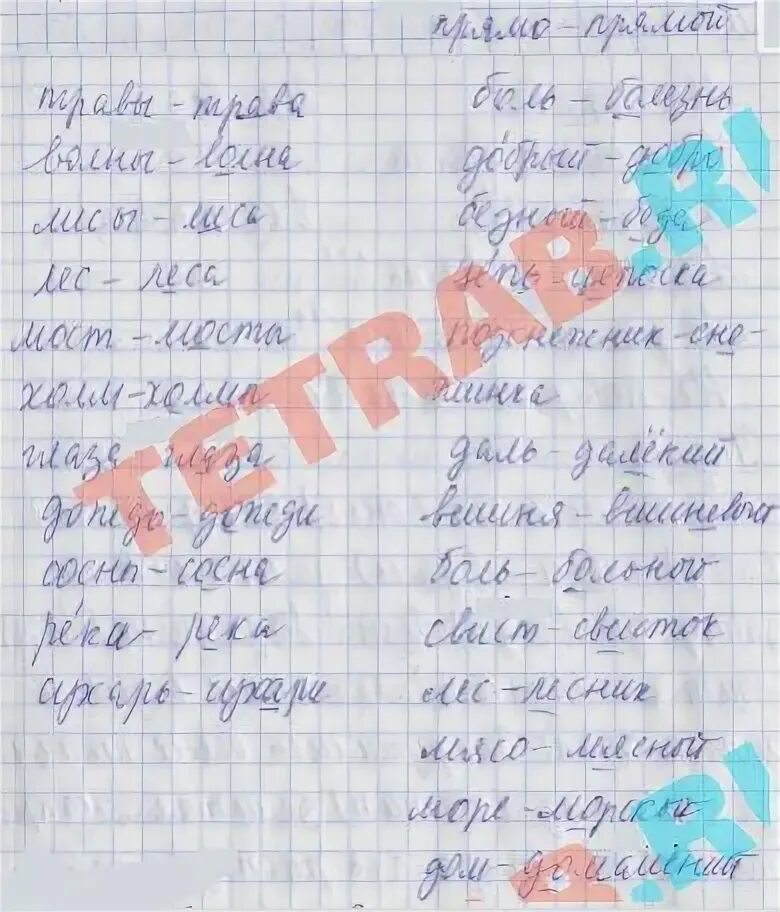 прямо - прямой
травы - трава
волны - волна
лисы - лиса
лес - леса
мост - мосты
холм - холмы
глаза - глаза
дождь - дожди
сосны - сосна
река - река
сухарь - сухари
боль - болезнь
добрый - добро
бедный - беда
цепь - цепочка
подснежник - сне-
жинка
даль - далёкий
вишня - вишневый
боль - больной
свист - свисток
лес - лесник
мясо - мясной
море - морских
дом - домашний
TETRAB.RU
B.RU